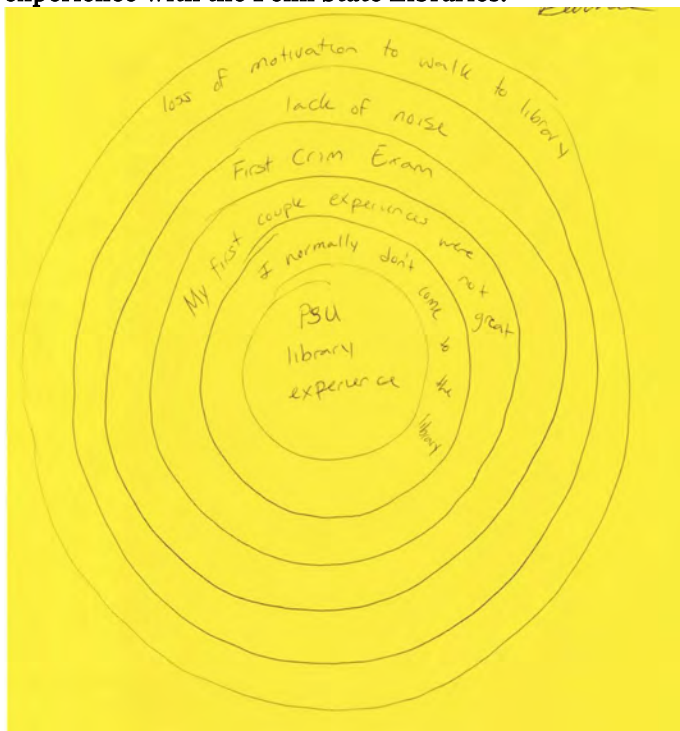 experience with the Penn State Libraries.
loss of motivation to walk to library
lack of noise
First Crim Exam
My first couple experiences were not great
I normally don't come to the library
PSU
library
experience